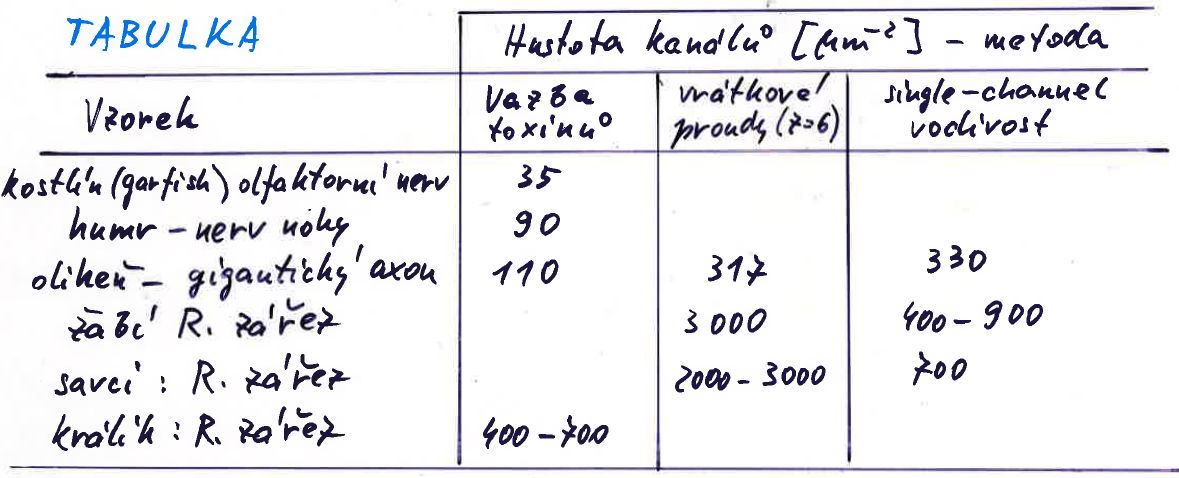 TABULKA
Hustota kanálů [μm⁻²] – metoda
Vzorek
Vazba toxinů
vrátkové proudy (z=6)
single-channel vodivost
kostlín (garfish) olfaktorní nerv 35
humr – nerv nohy 90
oliheň – gigantický axon 110 317 330
žabí R. zářez 3000 400–900
savci: R. zářez 2000–3000 700
králík: R. zářez 400–700